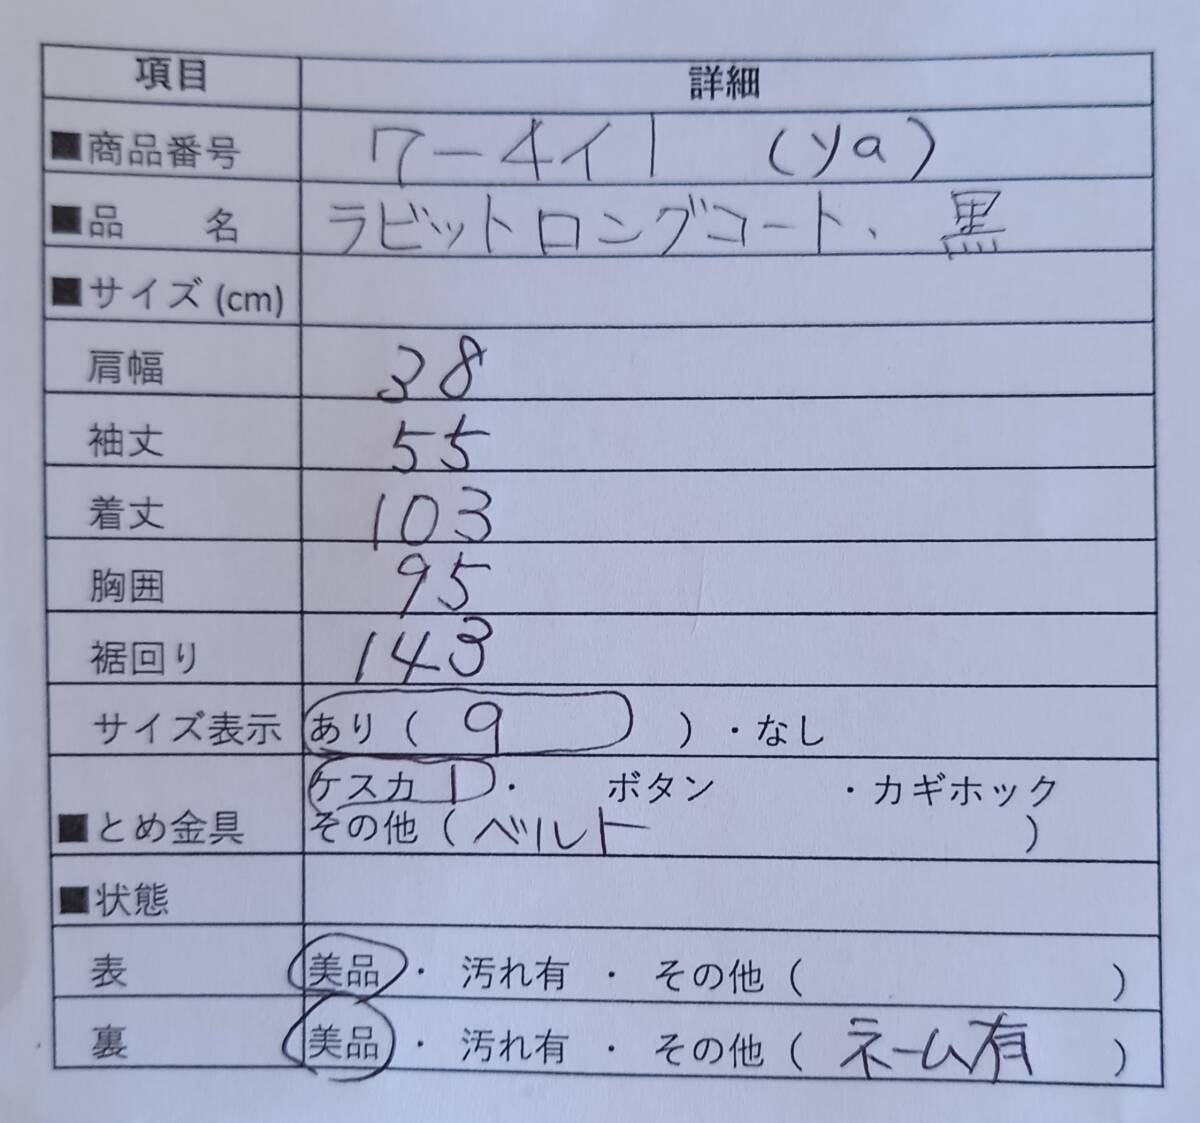 項目 詳細
■商品番号 ワー4イ1 (ya)
■品 名 ラビットロングコート、黒
■サイズ (cm)
肩幅 38
袖丈 55
着丈 103
胸囲 95
裾回り 143
サイズ表示 あり ( 9 ) ・なし
ケスカ 1 ・ ボタン ・カギホック
■とめ金具 その他 ( ベルト )
■状態
表 美品 ・ 汚れ有 ・ その他 ( )
裏 美品 ・ 汚れ有 ・ その他 ( ネーム有 )